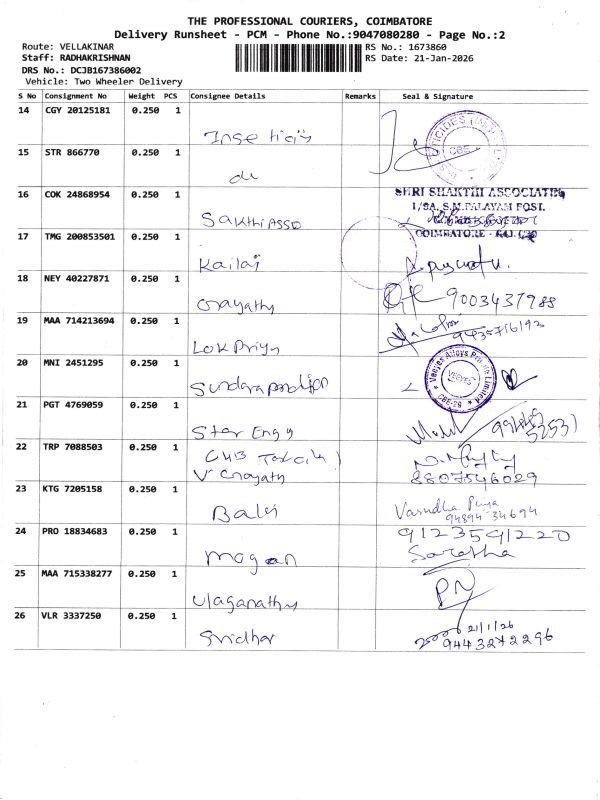 THE PROFESSIONAL COURIERS, COIMBATORE
Delivery Runsheet - PCM - Phone No.:9047080280 - Page No.:2
Route: VELLAKINAR RS No.: 1673860
Staff: RADHAKRISHNAN RS Date: 21-Jan-2026
DRS No.: DCJB167386002
Vehicle: Two Wheeler Delivery
S No Consignment No Weight PCS Consignee Details Remarks Seal & Signature
14 CGY 20125181 0.250 1
CBE
15 STR 866770 0.250 1
du
16 COK 24868954 0.250 1 SHRI SHAKTHI ASSOCIATES
1/8A, S.M.PALAYAM POST.
Sakthi Asso
COIMBATORE
17 TMG 200853501 0.250 1
Kailas
18 NEY 40227871 0.250 1
Gayathy 9003437988
19 MAA 714213694 0.250 1
9435716193
Lok Priya
20 MNI 2451295 0.250 1 Veeyes Alloys Private Limited
VEEYES
Sundarapandian
21 PGT 4769059 0.250 1
Star Engg
22 TRP 7088503 0.250 1
V Gayath 8807546029
23 KTG 7205158 0.250 1
Balaji Vasudha Priya
94894 34694
24 PRO 18834683 0.250 1 9123591220
Mogan Saratha
25 MAA 715338277 0.250 1
Ulaganathy PN
26 VLR 3337250 0.250 1
Sridhar 21/1/26
9443272296